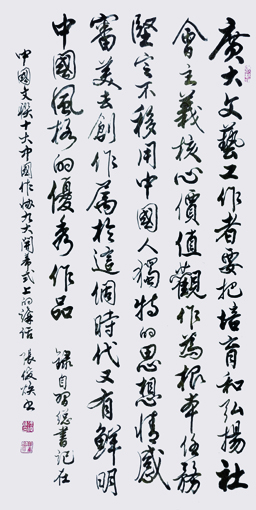 廣大文藝工作者要把培育和弘揚社
會主義核心價值觀作為根本任務
堅定不移用中國人獨特的思想情感
審美去創作屬於這個時代又有鮮明
中國風格的優秀作品 錄自習總書記在
中國文聯十大中國作協九大開幕式上的講話 張俊煥书